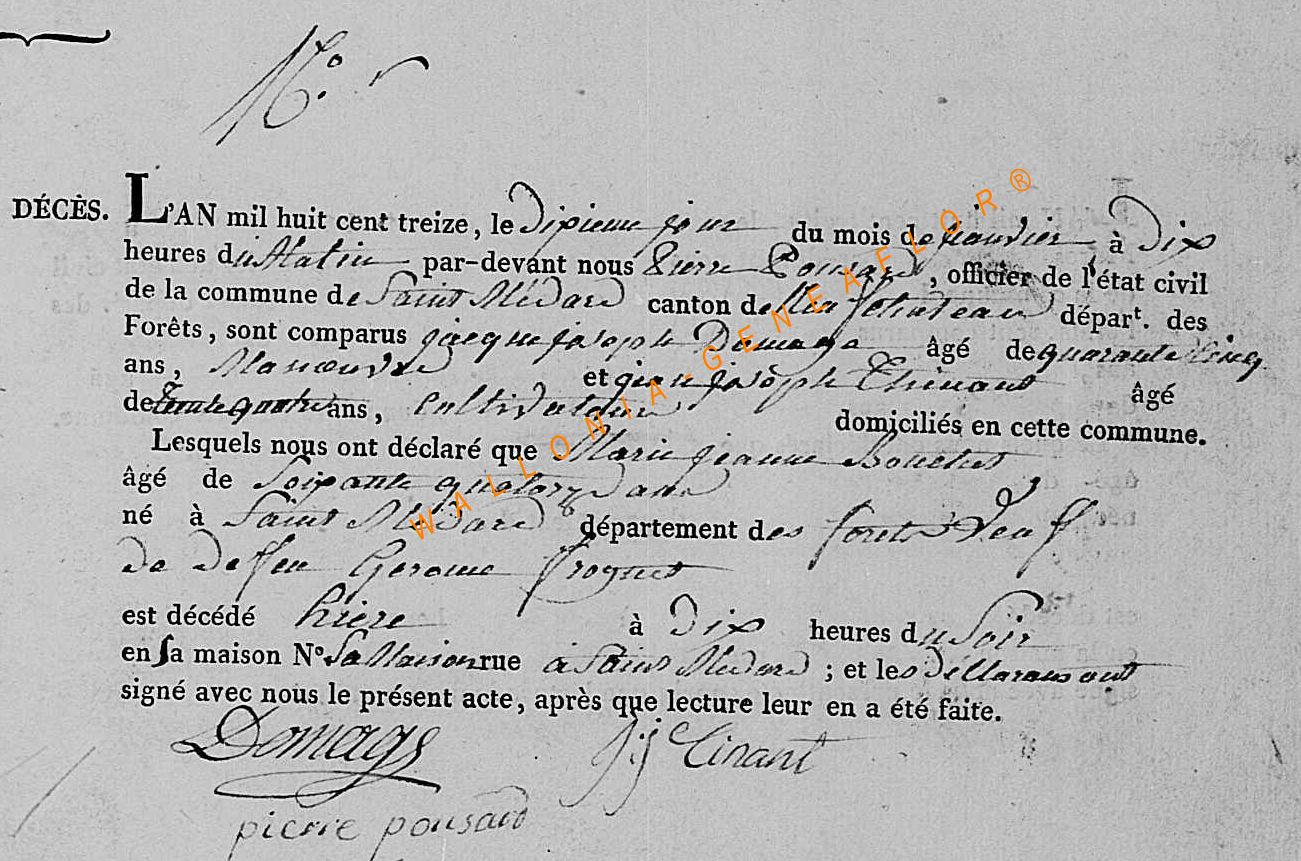 N.o 1
DÉCÈS. L'AN mil huit cent treize, le Dixieme jour du mois de janvier à Dix
heures du Matin par-devant nous Pierre Pousard, officier de l'état civil
de la commune de Saint Médard canton de Neufchateau départ. des
Forêts, sont comparus jacque joseph Domage âgé de quarante Cinq
ans, Manoeuvre et jean joseph Thinant âgé
de trente quatre ans, Cultivateur domiciliés en cette commune.
Lesquels nous ont déclaré que Marie jeanne Bouchet
âgé de Soixante quatorze ans
né à Saint Médard département des forets Veuf
de Deffeu Gerome frognet
est décédé hiere à Dix heures du Soir
en sa maison N° Sa Maison rue à Saint Médard ; et les Déclarans ont
signé avec nous le présent acte, après que lecture leur en a été faite.
Domage jj Tinant
pierre pousard
WALLONIA-GENEAFLOR®